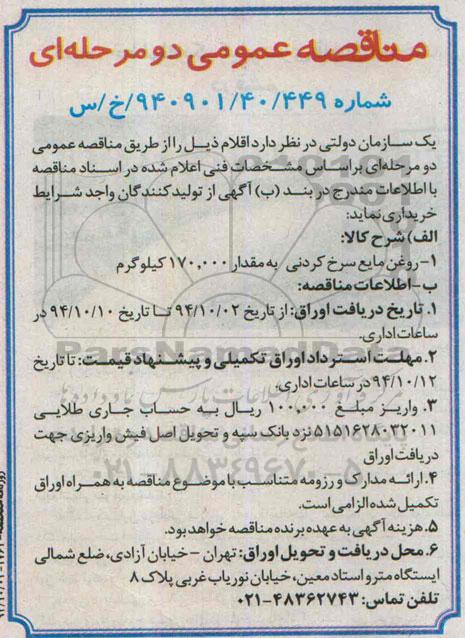 مناقصه عمومی دو مرحله‌ای
شماره ۹۴۰۹۰۱/۴۰/۴۴۹/خ/س
یک سازمان دولتی در نظر دارد اقلام ذیل را از طریق مناقصه عمومی
دو مرحله‌ای بر اساس مشخصات فنی اعلام شده در اسناد مناقصه
با اطلاعات مندرج در بند (ب) آگهی از تولیدکنندگان واجد شرایط
خریداری نماید:
الف) شرح کالا:
۱- روغن مایع سرخ کردنی به مقدار ۱۷۰,۰۰۰ کیلوگرم
ب- اطلاعات مناقصه:
۱. تاریخ دریافت اوراق: از تاریخ ۹۴/۱۰/۰۲ تا تاریخ ۹۴/۱۰/۱۰ در
ساعات اداری.
۲. مهلت استرداد اوراق تکمیلی و پیشنهاد قیمت: تا تاریخ
۹۴/۱۰/۱۲ در ساعات اداری.
۳. واریز مبلغ ۱۰۰,۰۰۰ ریال به حساب جاری طلایی
۵۱۵۱۶۲۸۰۳۲۰۱۱ نزد بانک سپه و تحویل اصل فیش واریزی جهت
دریافت اوراق
۴. ارائه مدارک و رزومه متناسب با موضوع مناقصه به همراه اوراق
تکمیل شده الزامی است.
۵. هزینه آگهی به عهده برنده مناقصه خواهد بود.
۶. محل دریافت و تحویل اوراق: تهران - خیابان آزادی، ضلع شمالی
ایستگاه مترو استاد معین، خیابان نوریاب غربی پلاک ۸
تلفن تماس: ۴۸۳۶۲۷۴۳-۰۲۱
ParsNamadData
۰۲۱-۸۸۳۴۹۶۷۰-۵